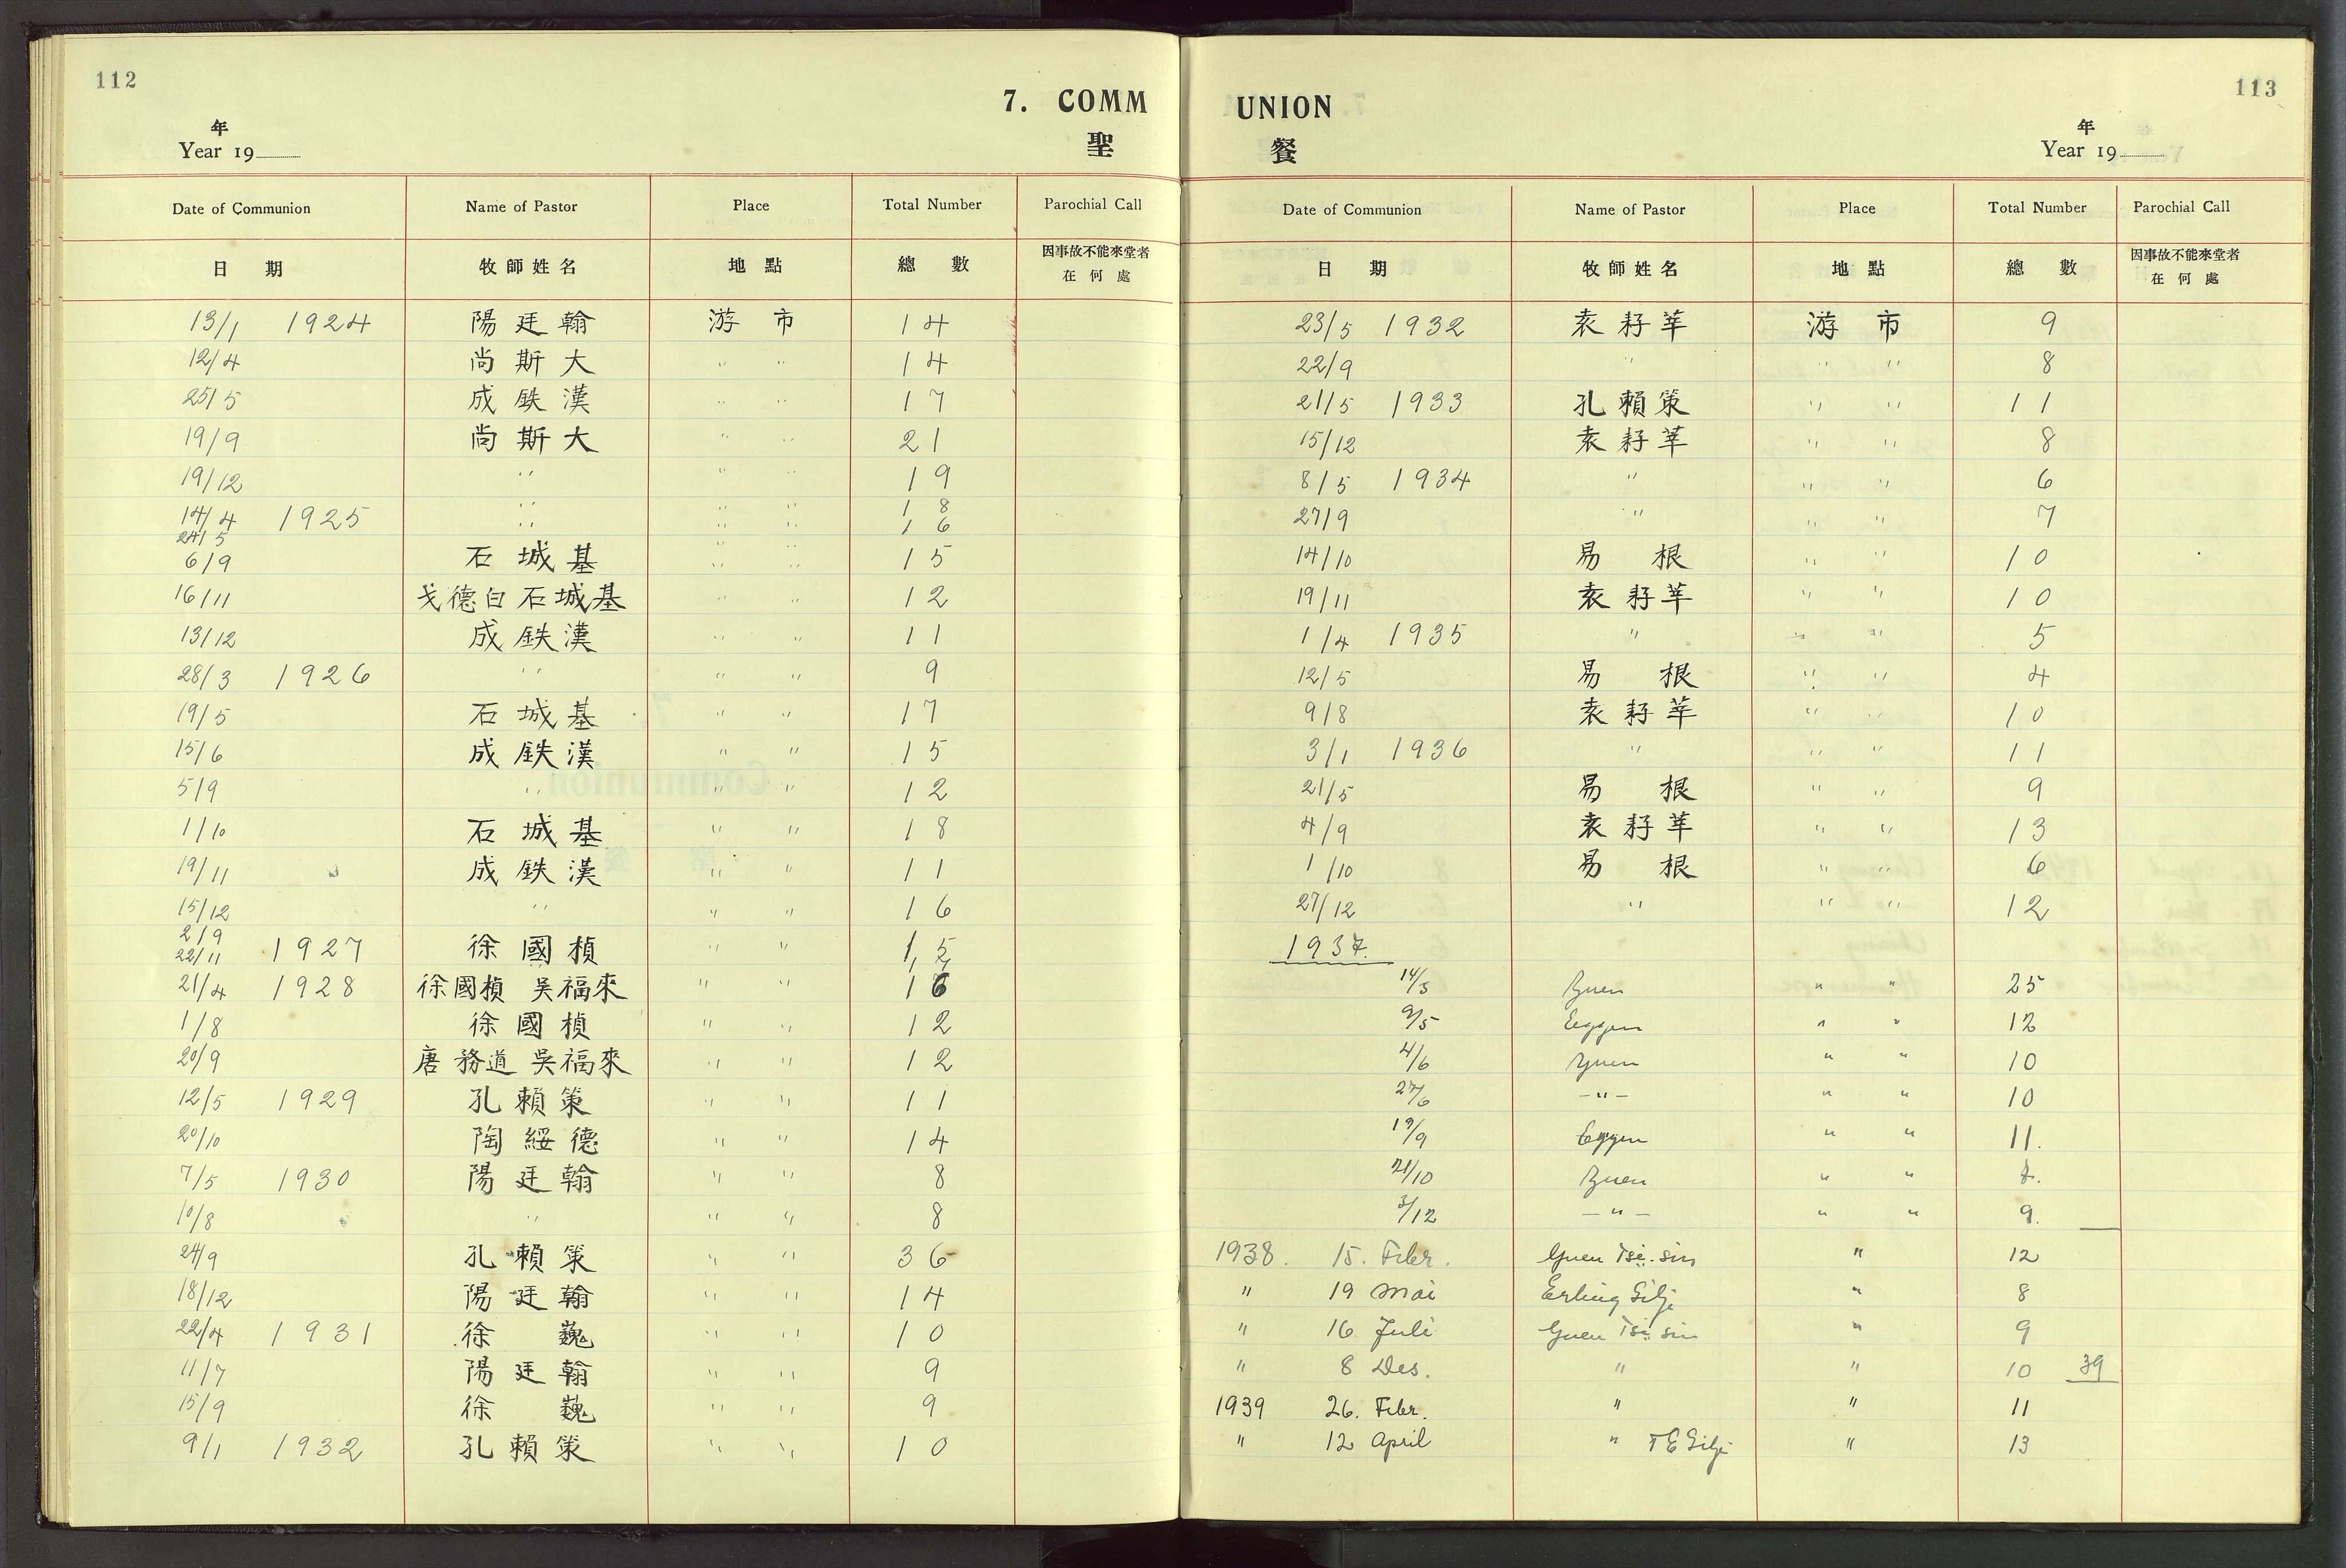 112
7. COMM
聖
年
Year 19
Date of Communion Name of Pastor Place Total Number Parochial Call
日 期 牧師姓名 地點 總數 因事故不能來堂者
在何處
13/1 1924 陽廷翰 游市 14
12/4 尚斯大 " " 14
25/5 成鉄漢 " " 17
19/9 尚斯大 " " 21
19/12 " " " 19
14/4 1925 " " " 18
24/5 " " " 16
6/9 石城基 " " 15
16/11 戈德白 石城基 " " 12
13/12 成鉄漢 " " 11
28/3 1926 " " " 9
19/5 石城基 " " 17
15/6 成鉄漢 " " 15
5/9 " " " 12
1/10 石城基 " " 18
19/11 成鉄漢 " " 11
15/12 " " " 16
2/9
22/11 1927 徐國楨 " " 15
21/4 1928 徐國楨 吳福來 " " 16
1/8 徐國楨 " " 12
20/9 唐務道 吳福來 " " 12
12/5 1929 孔賴策 " " 11
20/10 陶綏德 " " 14
7/5 1930 陽廷翰 " " 8
10/8 " " " 8
24/9 孔賴策 " " 36
18/12 陽廷翰 " " 14
22/4 1931 徐巍 " " 10
11/7 陽廷翰 " " 9
15/9 徐巍 " " 9
9/1 1932 孔賴策 " " 10
113
UNION
餐
年
Year 19
Date of Communion Name of Pastor Place Total Number Parochial Call
日 期 牧師姓名 地點 總數 因事故不能來堂者
在何處
23/5 1932 袁籽莘 游市 9
22/9 " " " 8
21/5 1933 孔賴策 " " 11
15/12 袁籽莘 " " 8
8/5 1934 " " " 6
27/9 " " " 7
14/10 易根 " " 10
19/11 袁籽莘 " " 10
1/4 1935 " " " 5
12/5 易根 " " 4
9/8 袁籽莘 " " 10
3/1 1936 " " " 11
21/5 易根 " " 9
4/9 袁籽莘 " " 13
1/10 易根 " " 6
27/12 " " " 12
1937.
14/3 Yuen " " 25
9/5 Eggen " " 12
4/6 Yuen " " 10
27/6 -"- " " 10
19/9 Eggen " " 11.
21/10 Yuen " "
3/12 -"- " " 9.
1938. 15. Febr. Yuen Tsi-sin " 12
" 19 Mai Erling Gilje " 8
" 16 Juli Yuen Tsi sin " 9
" 8 Des. " " 10 39
1939 26. Febr. " " 11
" 12 April " T E Gilje " 13